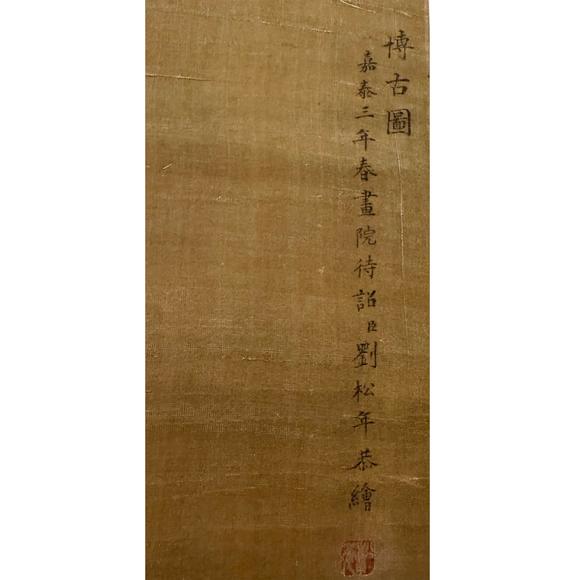 博古圖
嘉泰三年春畫院待詔臣劉松年恭繪